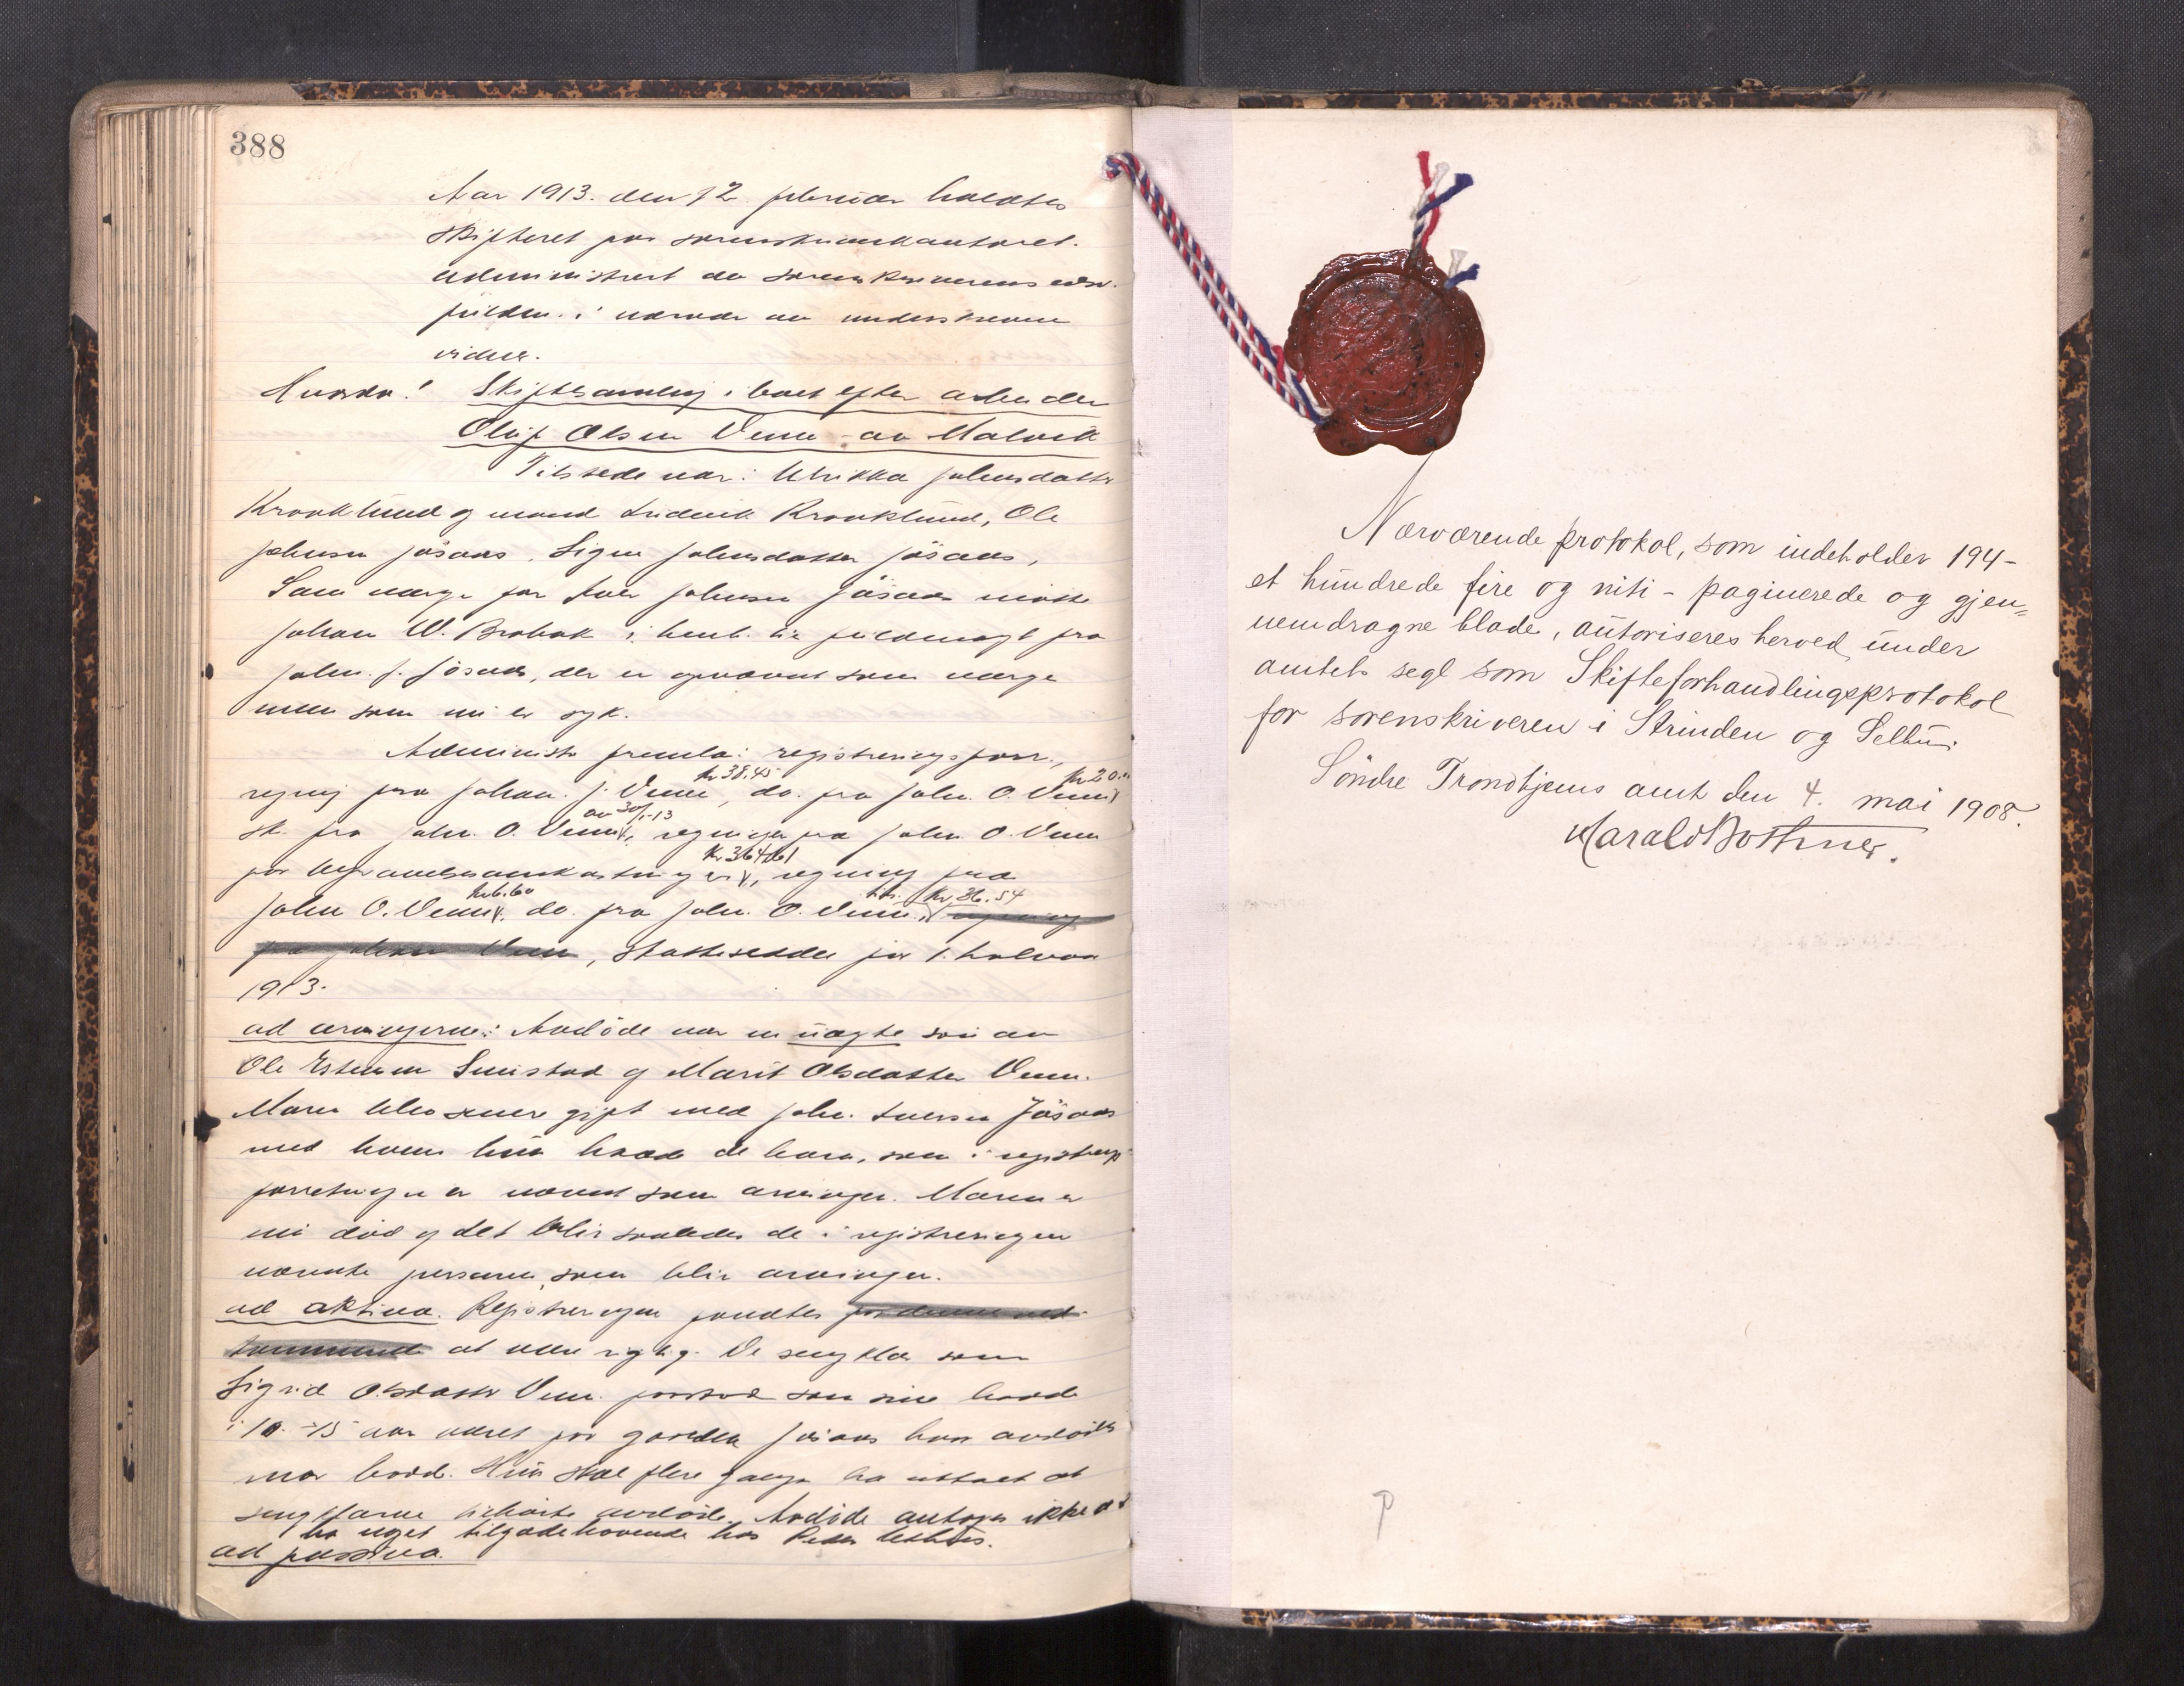 388
Aar 1913. den 12 februar holdtes
skifteret paa sorenskriverkontoret.
administrert av sorenskriverens edsv.
fuldm. i nærvær av underskrevne
vidner.
Hvorda! Skiftesamling i boet efter avdøde
Oluf Olsen Venn av Malvik
Tilstede var: Ulrikka Johnsdatter
Krokklund og mand Fredrik Krokklund, Ole
Johnsen Jøsaas, Signe Johnsdatter Jøsaas,
Som verge for Iver Johnsen Jøsaas møtte
Johan W. Brobak i henh. til fuldmagt fra
John. J. Jøsaas, der er opnævnt som verge
men som nu er syk.
Administr. fremla: registreringsforr.,
regning fra Johan. J. Venn kr 38.45, do. fra John. O. Venn kr 20.
sk. fra John. O. Venn av 30/1-13, regninger fra John O. Venn
for begravelsesomkostninger kr 364.61, regning fra
John O. Venn kr 6.60 do. fra John. O. Venn kr 36.54 regning
fra Johan Venn, skatteseddel for 1. halvaar
1913.
ad arvingerne: Avdøde var en uægte søn av
Ole Estensen Smistad og Marit Olsdatter Venn.
Moren blev senere gift med John. Iversen Jøsaas
med hvem hun hadde de barn, som i registrerings-
forretningen er nævnt som arvinger. Moren er
nu død og det blir saaledes de i registreringen
nævnte personer, som blir arvinger.
ad aktiva. Registreringen fandtes
at være rigtig. De sengklær som
Sigrid Olsdatter Venn paastod som sine hadde
i 10-15 aar været paa gaarden Jøsaas hvor avdødes
mor bodde. Hun skal flere ganger ha uttalt at
sengklærne tilhørte avdøde. Avdøde antages ikke at
ha noget tilgodehavende hos Peder
ad passiva.
Nærværende protokol, som indeholder 194-
et hundrede fire og niti - paginerede og gjen=
nemdragne blade, autoriseres herved under
amtets segl som Skifteforhandlingsprotokol
for sorenskriveren i Strinden og Selbu.
Söndre Trondhjems amt den 4. mai 1908.
Harald Bothner.
P